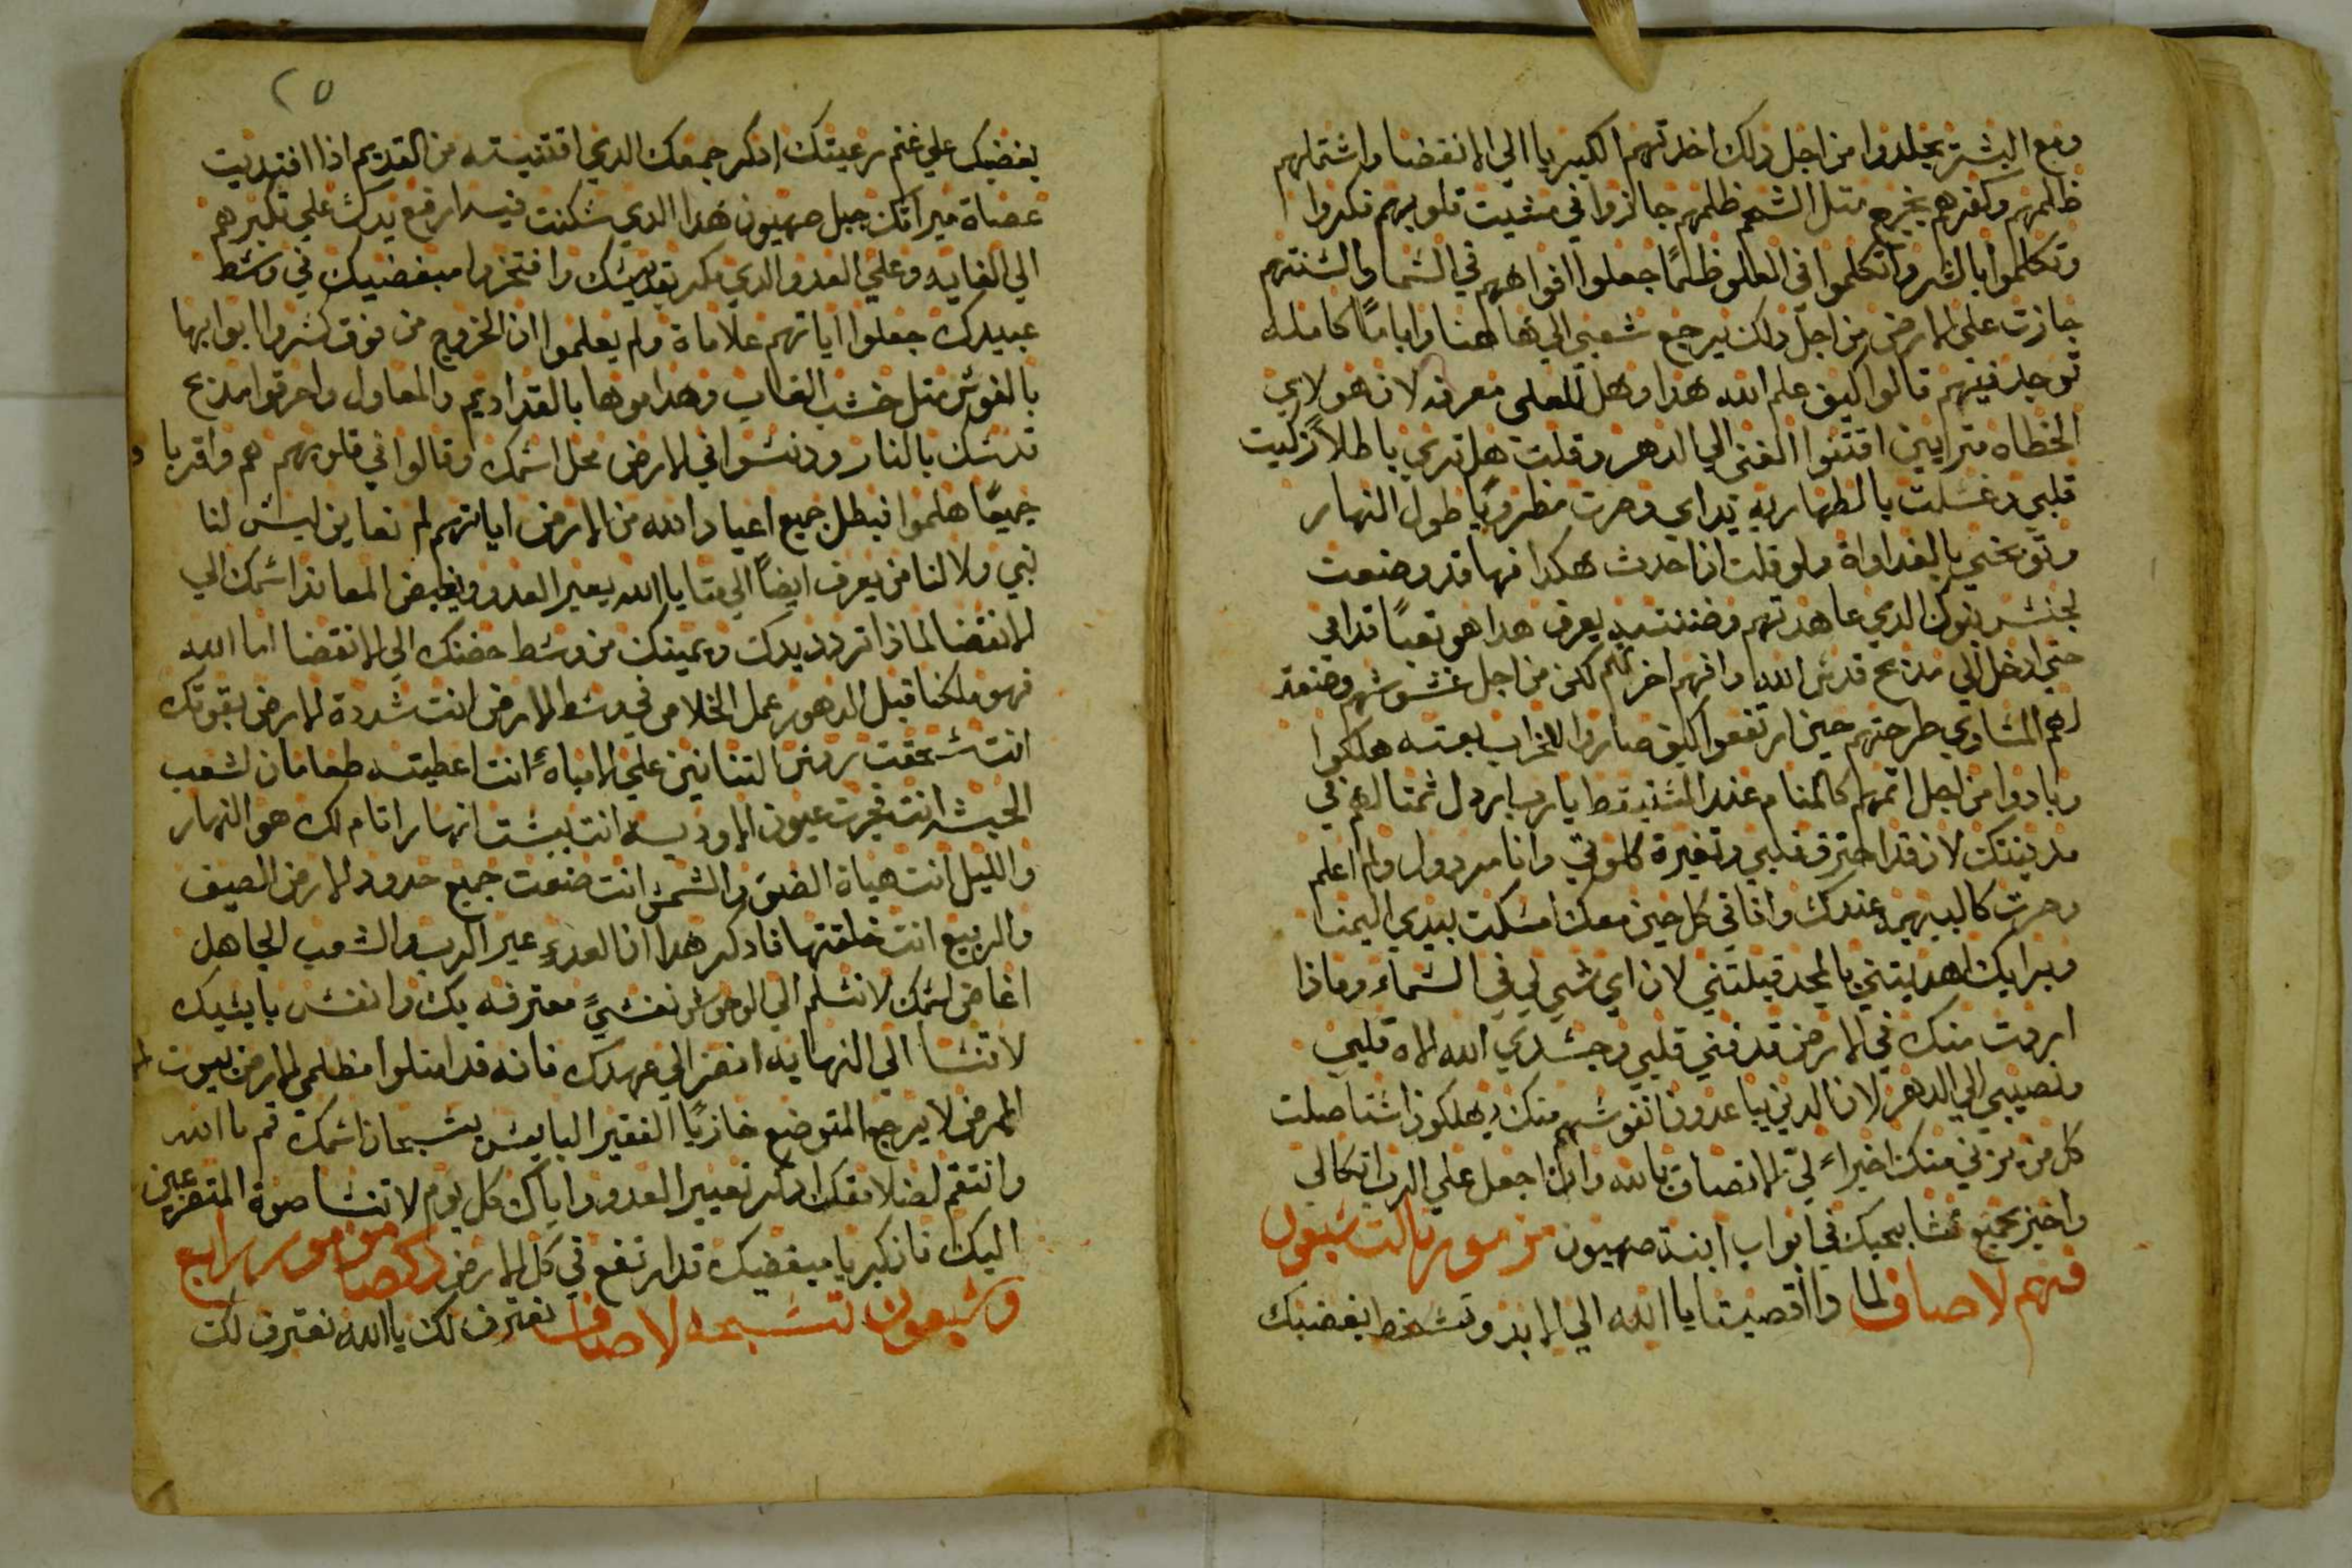 ومع البشر يجلدوا من اجل ذلك اخذتهم الكبريا الي الانقضا واشتملهم
ظلمهم وكفرهم يخرج متل الشحم ظلمهم جازوا في مشيت قلوبهم فكروا
وتكلموا بالشر وتكلموا في العلو ظلمًا جعلوا افواههم في الشما والشنتهم
جازت علي الارض من اجل ذلك يرجع شعبي الي هاهنا واياما كامله
توجد فيهم قالوا كيف علم الله هدا وهل للعلى معرفه لان هولاي
الخطاه مترايين اقتنوا الغنى الي الدهر وقلت هل تري باطلاً زكيت
قلبي وغسلت بالطهاريه يداي وصرت مظروبًا طول النهار
وتوبخني بالغداواة ولو قلت انا احدث هكدا فها قد وضعت
لجنش بنوك الدي عاهدتهم وضننت يعرف هدا هو تعبًا قدامي
حتي ادخل الي مدبح قدش الله وافهم اخرتهم لكن من اجل غشوشهم وضعت
لهم المشاوي طرحتهم حين ارتفعوا كيف صاروا للخراب بغته هلكوا
وبادوا من اجل اتمهم كالمنام عند المشتيقظ يارب اردل شمتالهم في
مدينتك لان قد احترق قلبي وتغيرة كلوتي وانا مردول ولم اعلم
وصرت كالبهيمه عندك وانا في كل حين معك امشكت بيدي اليمنا
وبرايك اهديتني بالمجد قبلتني لان اي شي لي في الشماء وماذا
اردت منك في الارض قد فني قلبي وجشدي الله الاه قلبي
ونصيبي الي الدهر لان الدين يباعدون نفوشهم منك يهلكون اشتاصلت
كل من يزني منك اخيراً لي الالتصاق بالله وان اجعل علي الرب اتكالي
واخبر بجميع تشابيحك في ابواب ابنة صهيون مزمور تالت شبعون
فهم لاصاف لما دا اقصيتنا يا الله الي الابد وتشخط بغضبك
٢٥
بغضبك علي غنم رعيتك ادكر جمعك الدي اقتنيته من القديم اذا افتديت
عصاة ميراتك جبل صهيون هدا الدي شكنت فيه ارفع يدك علي تكبرهم
الي الغايه وعلي العدو الدي مكر بقديشك وافتخروا مبغضيك في وشط
عبيدك جعلوا اياتهم علاماة ولم يعلموا ان الخروج من فوق كشروا ابوابها
بالفوش متل خشب الغاب وهدموها بالقداديم والمعاول واحرقوا مدبح
قدشك بالنار ودنشوا في الارض محل اشمك وقالوا في قلوبهم هم واقربا
جميعًا هلموا نبطل جميع اعياد الله من الارض اياتهم لم نعاين ليش لنا
نبي ولا لنا من يعرف ايضًا الي متا يا الله يعير العدو ويغيض المعاند اشمك الي
الانقضا لماذا تردد يدك ويمينك من وشط حضنك الي الانقضا اما الله
فهو ملكنا قبل الدهور عمل الخلاص في وشط الارض انت شددة الارض بقوتك
انت شحقت روش التنانين علي الامياه انت اعطيته طعامان لشعب
الحبشه انت فجرت عيون الاوديه انت يبشت انهار اتام لك هو النهار
والليل انت هيات الضو والشمش انت صنعت جميع حدود الارض الصيف
والربيع انت خلقتها فادكر هدا ان العدو عير الرب والشعب الجاهل
اغاض اشمك لا تشلم الي الوحوش نفشًا معترفه بك وانفش بايشيك
لا تنشا الي النهايه انضر الي عهدك فانه قد امتلوا مظلمي الارض بيوت
المرض لا يرجع المتوضع خازيًا الفقير البايش يشبحان اشمك قم يا الله
وانتقم لضلامتك ادكر تعيير العدو واياك كل يوم لا تنشا صوة المتضرعين
اليك فان كبريا مبغضيك قد ارتفع في كل الارض مزمور رابع
وشبعون تشبحه لاصاف نعترف لك يا الله نعترف لك